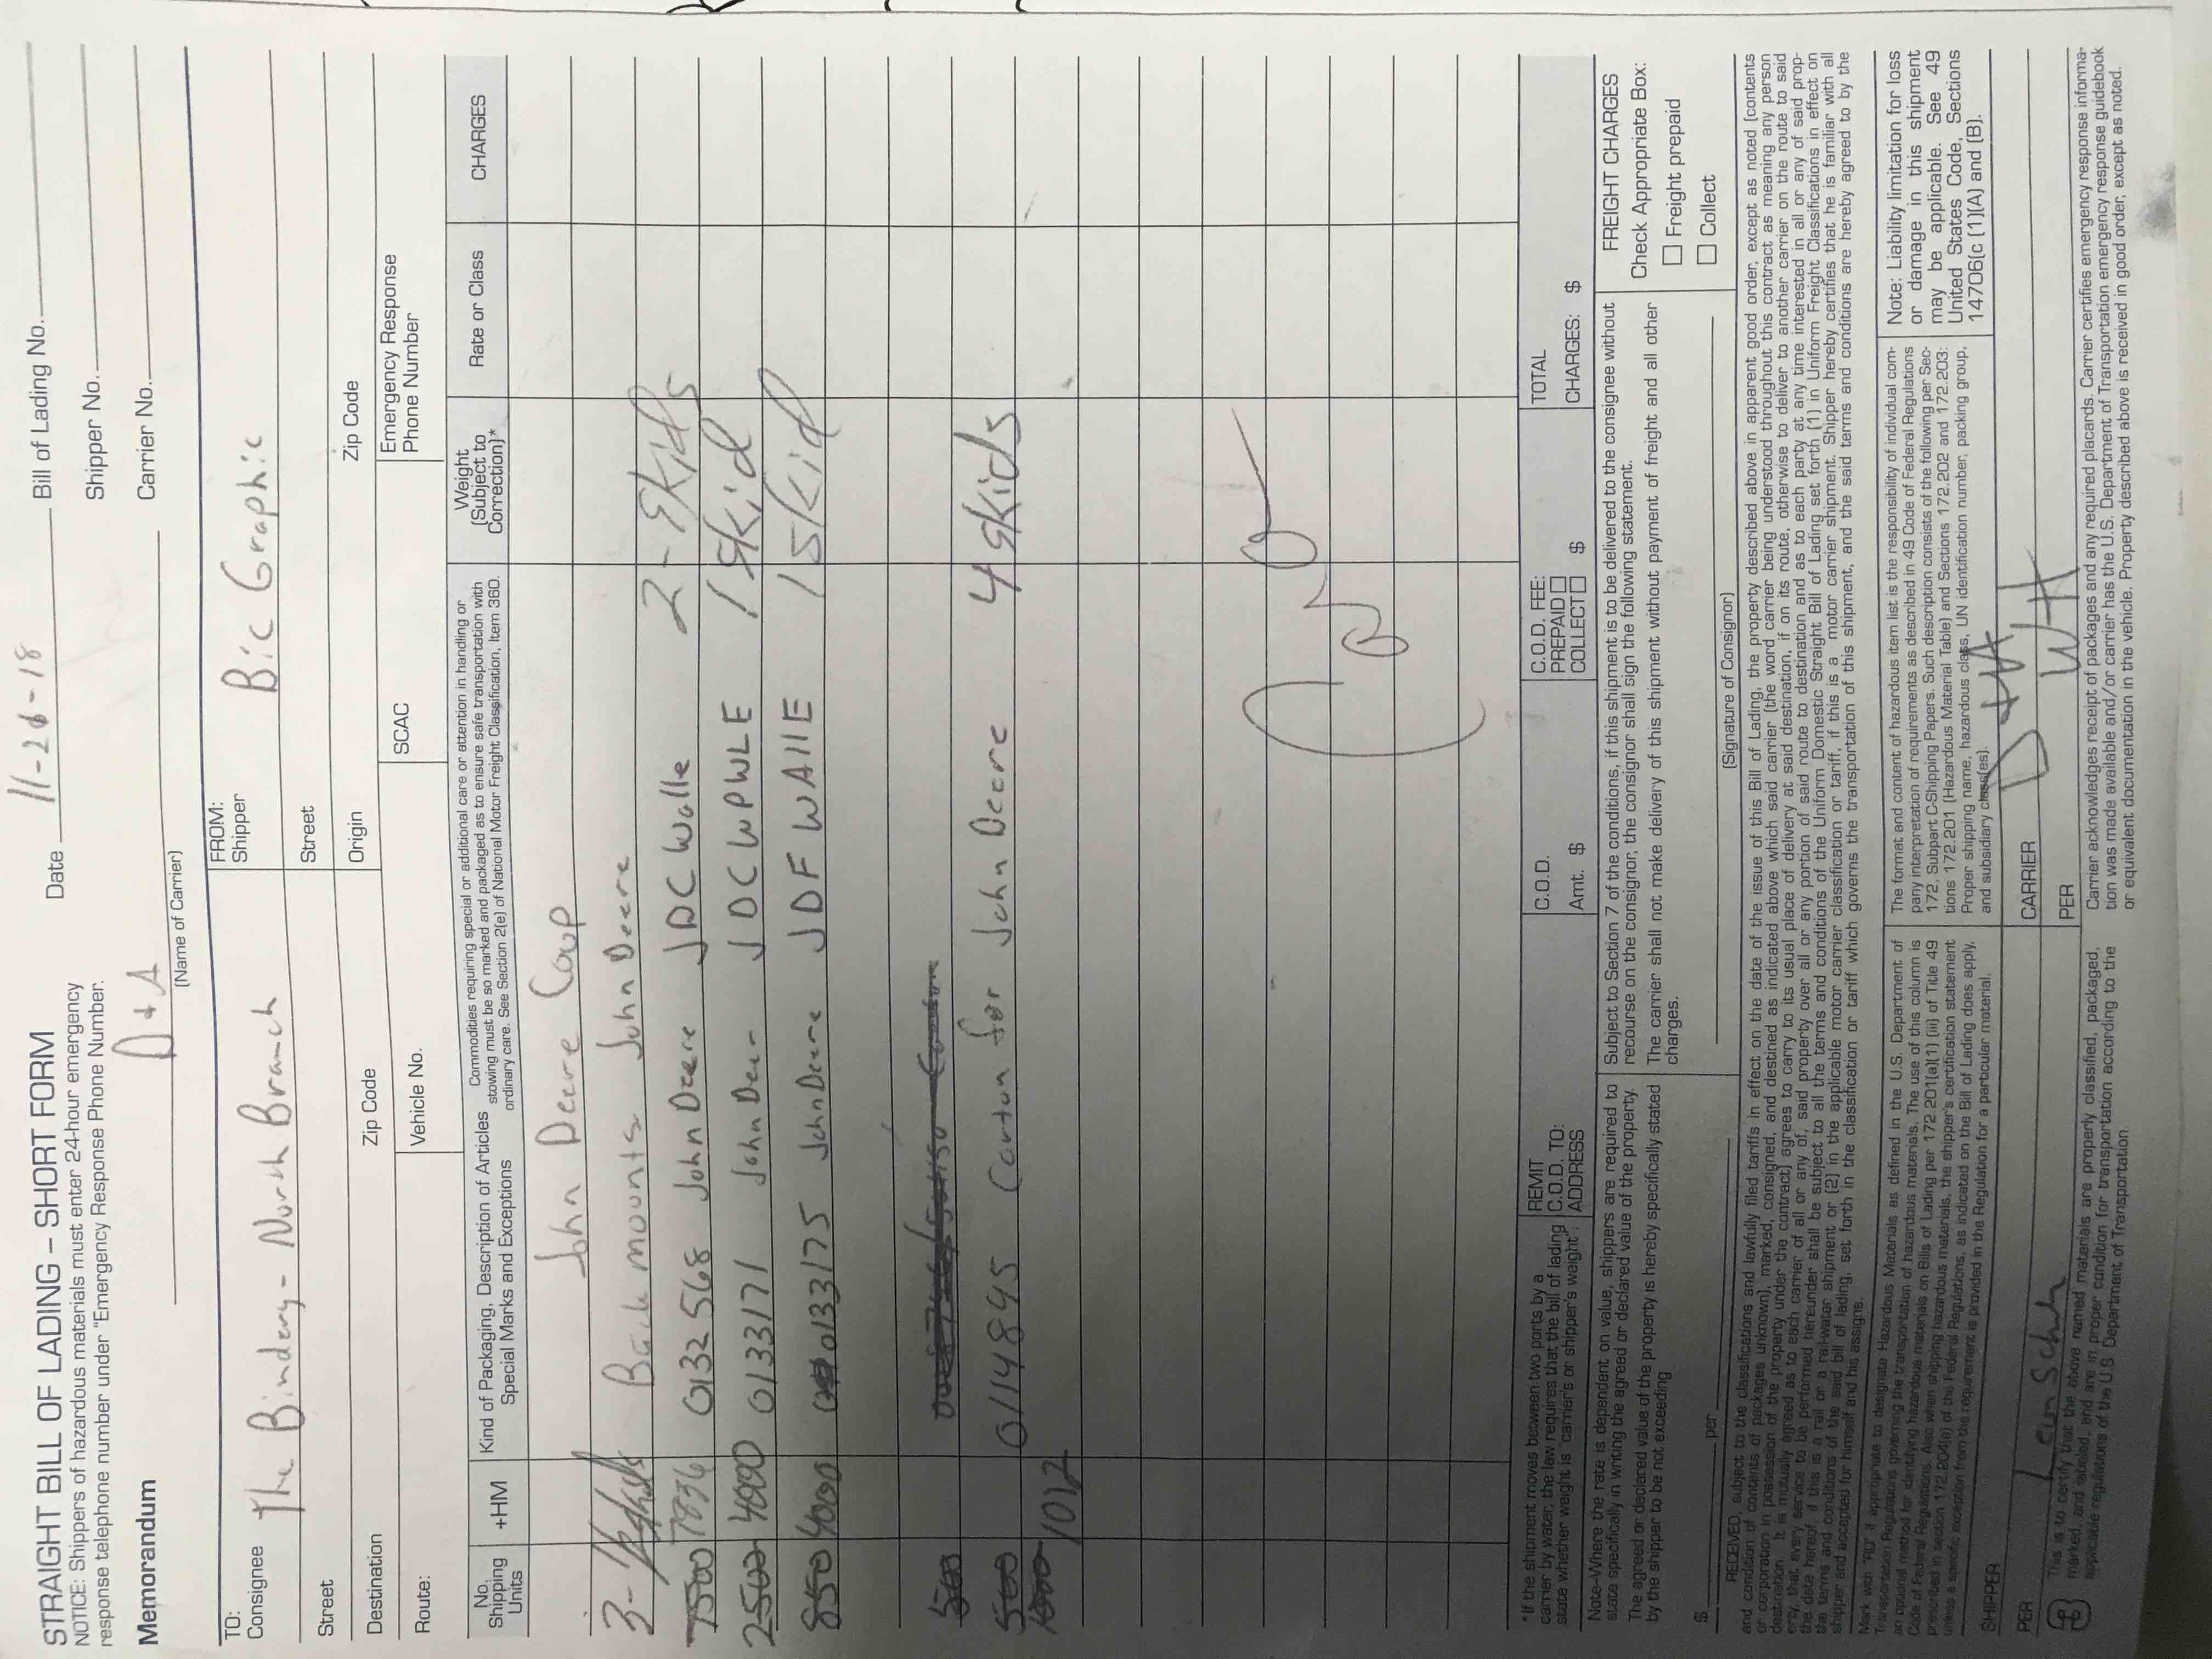 STRAIGHT BILL OF LADING – SHORT FORM
NOTICE: Shippers of hazardous materials must enter 24-hour emergency
response telephone number under "Emergency Response Phone Number."
Memorandum
D+A
(Name of Carrier)
Date 11-26-18
Bill of Lading No.
Shipper No.
Carrier No.
TO:
Consignee The Bindery - North Branch
Street
Destination Zip Code
Route: Vehicle No.
FROM:
Shipper Bic Graphic
Street
Origin Zip Code
SCAC
Emergency Response
Phone Number
No.
Shipping
Units
+HM
Kind of Packaging, Description of Articles
Special Marks and Exceptions
Commodities requiring special or additional care or attention in handling or
stowing must be so marked and packaged as to ensure safe transportation with
ordinary care. See Section 2(e) of National Motor Freight Classification, Item 360.
Weight
(Subject to
Correction)*
Rate or Class
CHARGES
John Deere Coop
3- Back mounts John Deere
7500 7836 0132568 John Deere JDC Walle 2-skids
2500 4000 0133171 John Deer JDCWPWLE 1 skid
8500 4000 0133175 John Deere JDFWAllE 1 skid
500
500 0114895 Carton for John Deere 4 skids
1000 1012
*If the shipment moves between two ports by a
carrier by water, the law requires that the bill of lading
state whether weight is "carrier's or shipper's weight".
REMIT
C.O.D. TO:
ADDRESS
C.O.D.
Amt. $
C.O.D. FEE:
PREPAID
COLLECT $
TOTAL
CHARGES: $
Note-Where the rate is dependent on value, shippers are required to
state specifically in writing the agreed or declared value of the property.
The agreed or declared value of the property is hereby specifically stated
by the shipper to be not exceeding
$ per
Subject to Section 7 of the conditions, if this shipment is to be delivered to the consignee without
recourse on the consignor, the consignor shall sign the following statement.
The carrier shall not make delivery of this shipment without payment of freight and all other
charges.
(Signature of Consignor)
FREIGHT CHARGES
Check Appropriate Box:
Freight prepaid
Collect
RECEIVED, subject to the classifications and lawfully filed tariffs in effect on the date of the issue of this Bill of Lading, the property described above in apparent good order, except as noted (contents
and condition of contents of packages unknown), marked, consigned, and destined as indicated above which said carrier (the word carrier being understood throughout this contract as meaning any person
or corporation in possession of the property under the contract) agrees to carry to its usual place of delivery at said destination, if on its route, otherwise to deliver to another carrier on the route to said
destination. It is mutually agreed as to each carrier of all or any of, said property over all or any portion of said route to destination and as to each party at any time interested in all or any of said prop-
erty, that every service to be performed hereunder shall be subject to all the terms and conditions of the Uniform Domestic Straight Bill of Lading set forth (1) in Uniform Freight Classifications in effect on
the date hereof, if this is a rail or a rail-water shipment or (2) in the applicable motor carrier classification or tariff, if this is a motor carrier shipment. Shipper hereby certifies that he is familiar with all
the terms and conditions of the said bill of lading, set forth in the classification or tariff which governs the transportation of this shipment, and the said terms and conditions are hereby agreed to by the
shipper and accepted for himself and his assigns.
Mark with "RQ" if appropriate to designate Hazardous Materials as defined in the U.S. Department of
Transportation Regulations governing the transportation of hazardous materials. The use of this column is
an optional method for identifying hazardous materials on Bills of Lading per 172.201(a)(1) (iii) of Title 49
Code of Federal Regulations. Also when shipping hazardous materials, the shipper's certification statement
prescribed in section 172.204(a) of the Federal Regulations, as indicated on the Bill of Lading does apply,
unless a specific exception from the requirement is provided in the Regulation for a particular material.
The format and content of hazardous item list is the responsibility of individual com-
pany interpretation of requirements as described in 49 Code of Federal Regulations
172, Subpart C-Shipping Papers. Such description consists of the following per Sec-
tions 172.201 (Hazardous Material Table) and Sections 172.202 and 172.203:
Proper shipping name, hazardous class, UN identification number, packing group,
and subsidiary class(es).
Note: Liability limitation for loss
or damage in this shipment
may be applicable. See 49
United States Code, Sections
14706(c (1)(A) and (B).
SHIPPER
PER
CARRIER D+A
PER WH
This is to certify that the above named materials are properly classified, packaged,
marked, and labeled, and are in proper condition for transportation according to the
applicable regulations of the U.S. Department of Transportation.
Carrier acknowledges receipt of packages and any required placards. Carrier certifies emergency response informa-
tion was made available and/or carrier has the U.S. Department of Transportation emergency response guidebook
or equivalent documentation in the vehicle. Property described above is received in good order, except as noted.